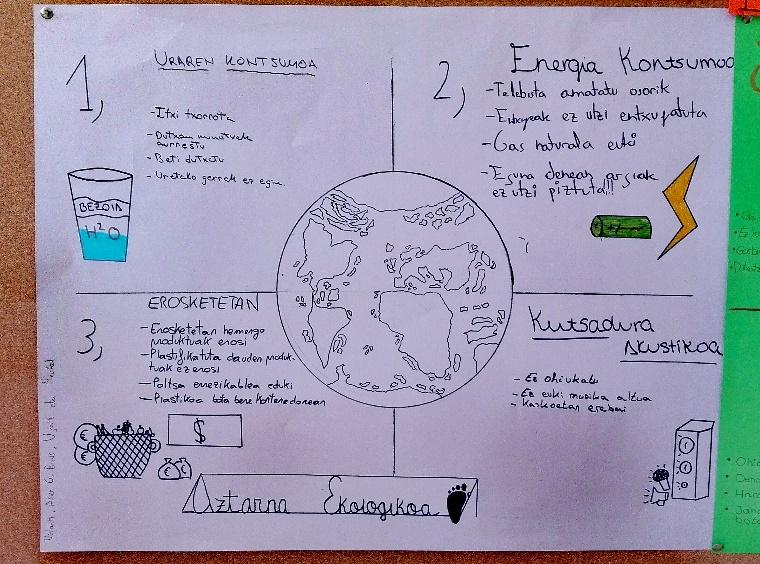 1,
URAREN KONTSUMOA
-Itxi txorrota
-Dutxan minutuak
aurreztu
-Beti dutxatu
-Uretako gerrak ez egin.
BEZOIA
H²O
2,
Energia Kontsumoa
-Telebista amatatu osorik
ez utzi entxufatuta
-Gas naturala euki
-Eguna denean argiak
ez utzi piztuta!!!
3,
EROSKETETAN
-Erosketetan hemengo
produktuak erosi
-Plastifikatuta dauden produk-
tuak ez erosi
-Poltsa errezikablea eduki
-Plastikoa bota bere kontenedorean
$
€
€
Kutsadura
Akustikoa
-Ez ohiukatu
-Ez euki musika altua
-Kaskoetan erabai
Aztarna Ekologikoa